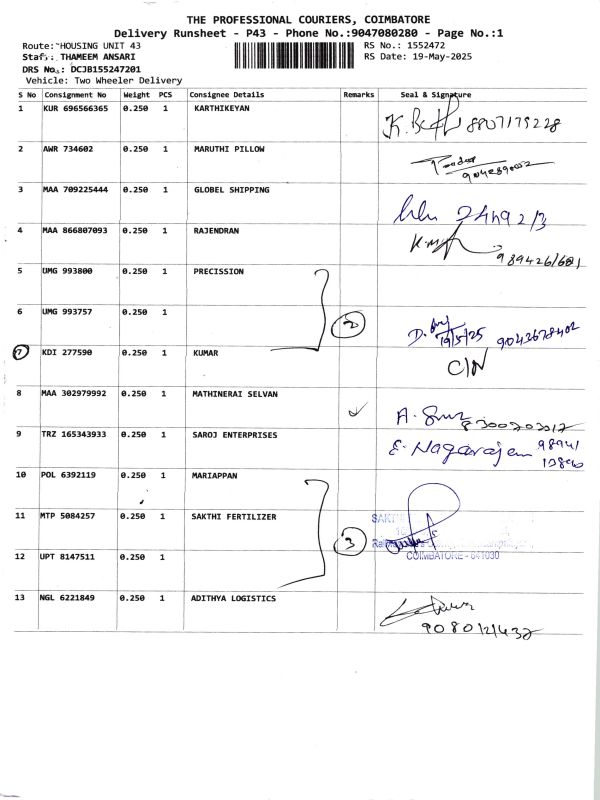 THE PROFESSIONAL COURIERS, COIMBATORE
Delivery Runsheet - P43 - Phone No.:9047080280 - Page No.:1
Route: HOUSING UNIT 43 RS No.: 1552472
Staff: THAMEEM ANSARI RS Date: 19-May-2025
DRS No.: DCJB155247201
Vehicle: Two Wheeler Delivery
S No Consignment No Weight PCS Consignee Details Remarks Seal & Signature
1 KUR 696566365 0.250 1 KARTHIKEYAN 8807175228
2 AWR 734602 0.250 1 MARUTHI PILLOW
3 MAA 709225444 0.250 1 GLOBEL SHIPPING
4 MAA 866807093 0.250 1 RAJENDRAN
5 UMG 993800 0.250 1 PRECISSION
6 UMG 993757 0.250 1 2 19/5/25
7 KDI 277590 0.250 1 KUMAR C/N
8 MAA 302979992 0.250 1 MATHINERAI SELVAN
9 TRZ 165343933 0.250 1 SAROJ ENTERPRISES E. Nagarajan
10 POL 6392119 0.250 1 MARIAPPAN
11 MTP 5084257 0.250 1 SAKTHI FERTILIZER
12 UPT 8147511 0.250 1 3 COIMBATORE - 641030
13 NGL 6221849 0.250 1 ADITHYA LOGISTICS